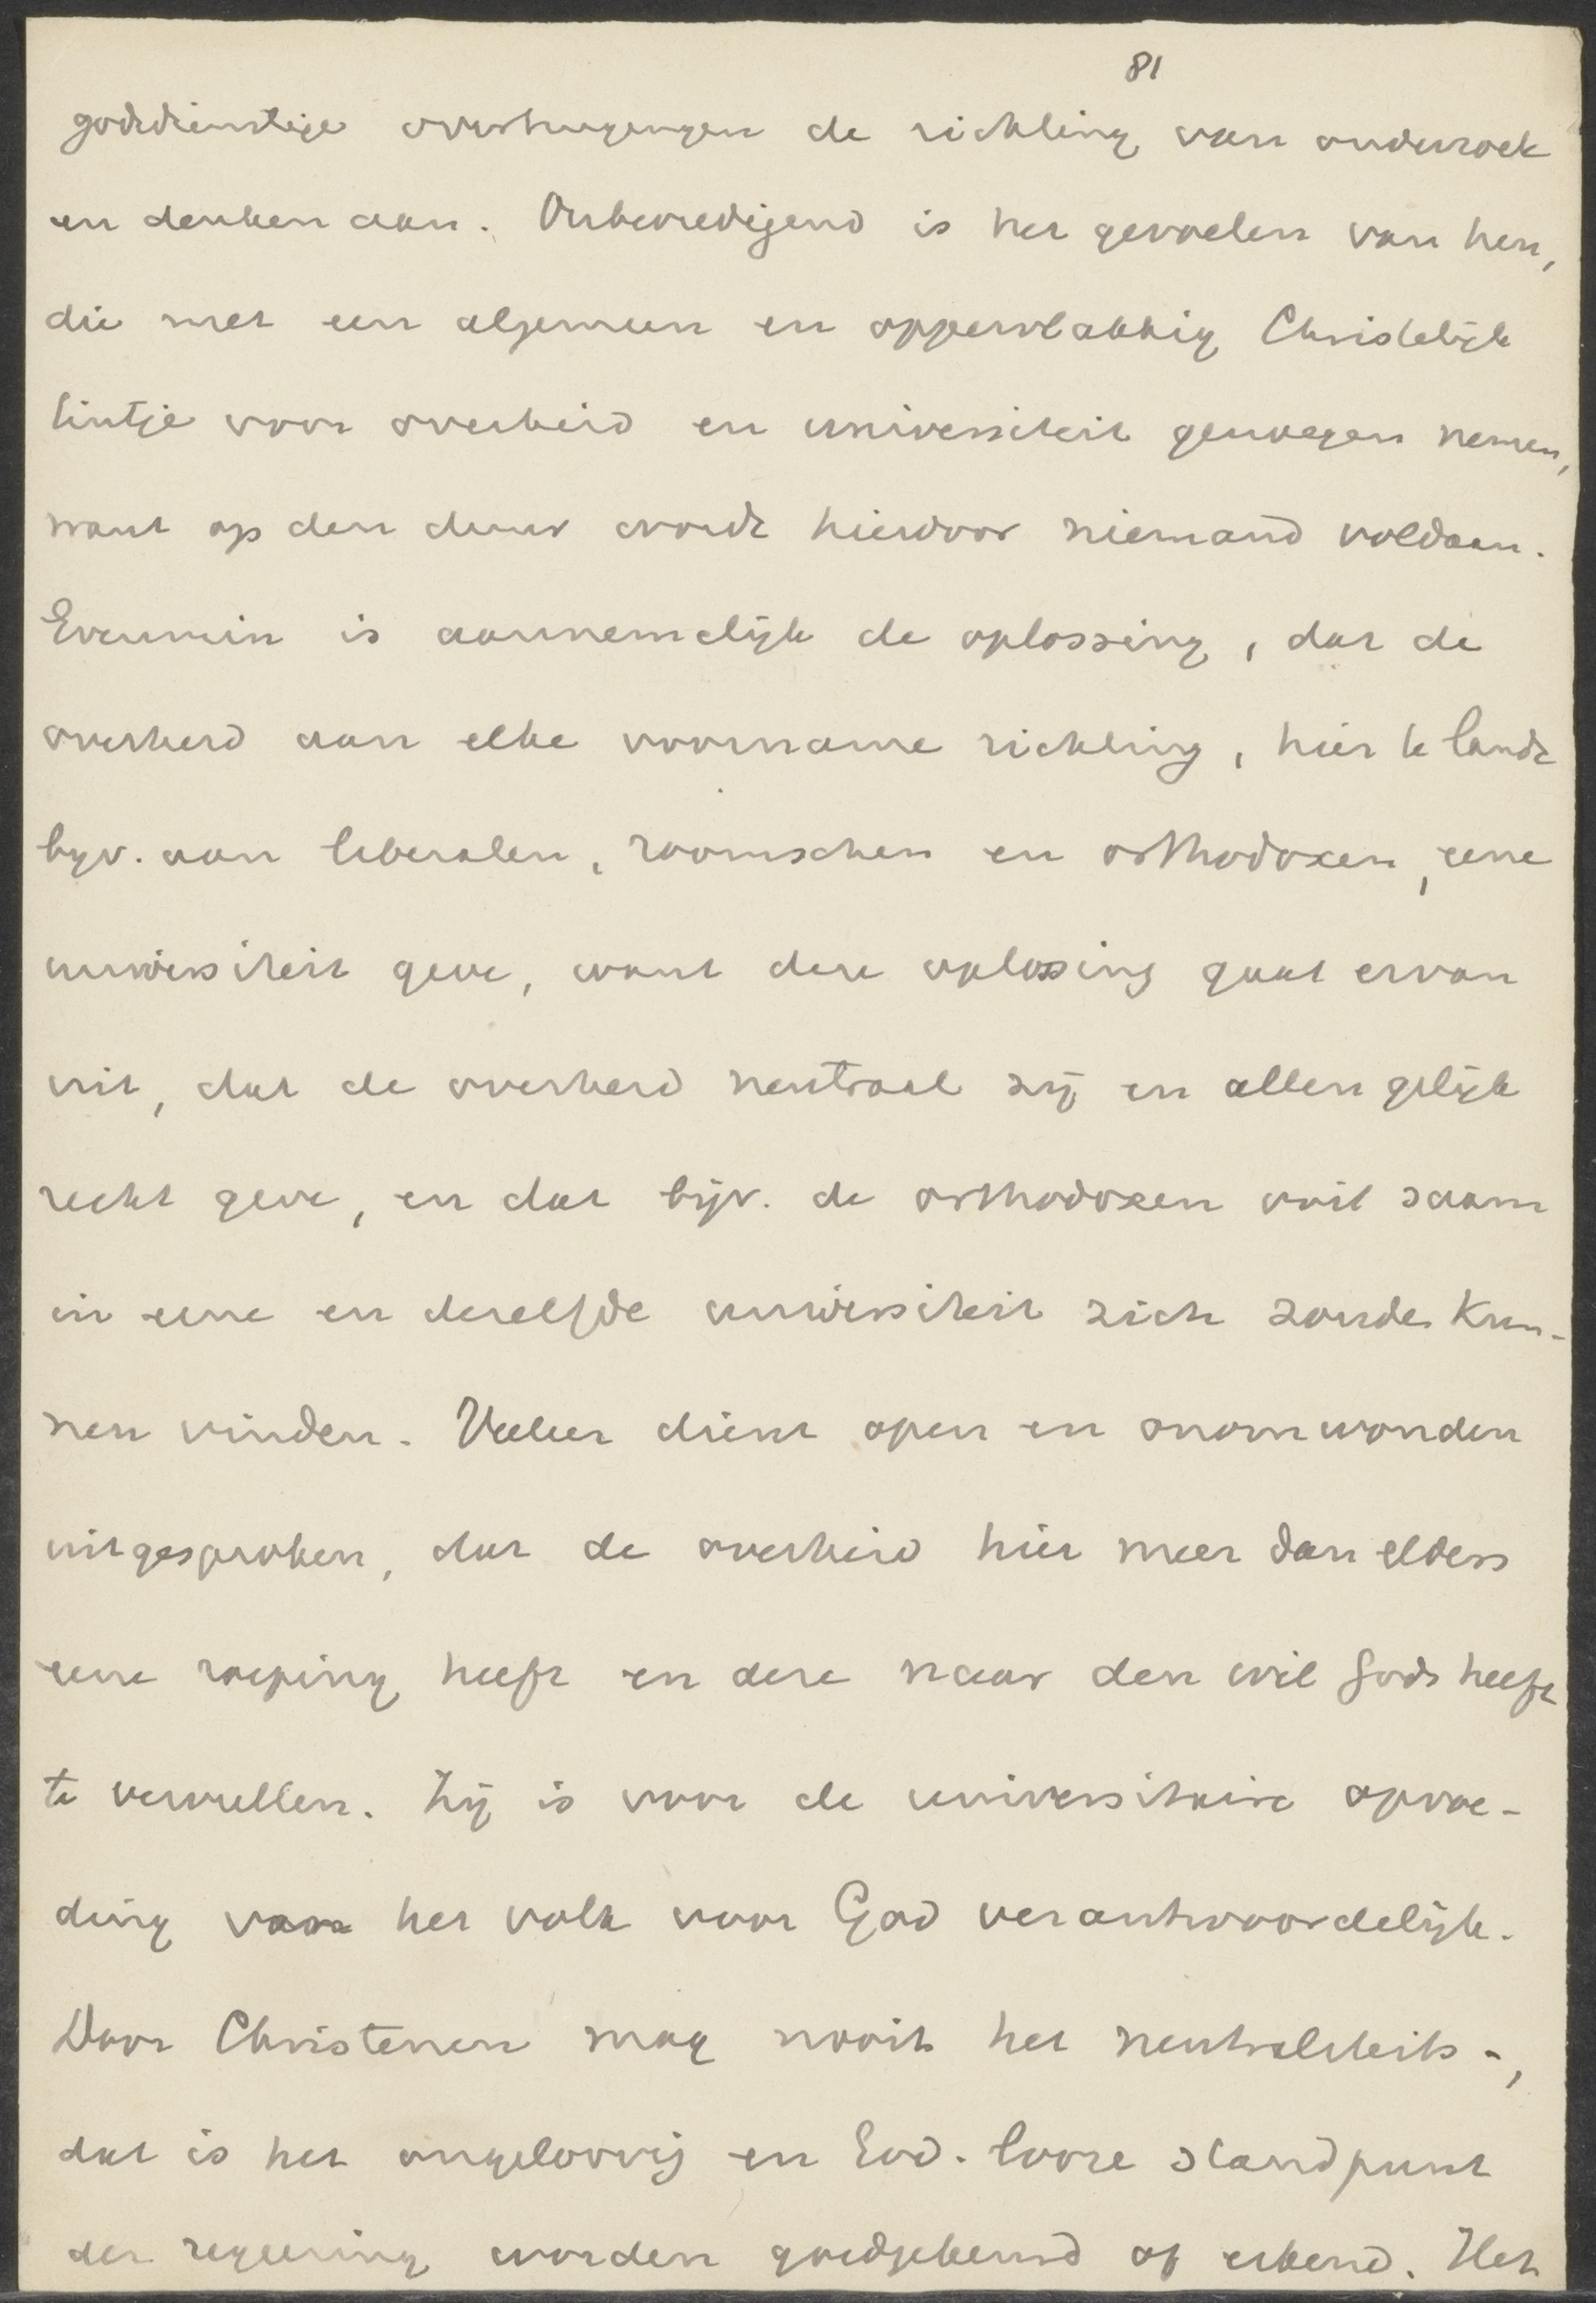 81
godsdienstige overtuigingen de richting van onderzoek
en denken aan. Onbevredigend is het gevoelen van hen,
die met een algemeen en oppervlakkig Christelijk
tintje voor overheid en universiteit genoegen nemen,
want op den duur wordt hierdoor niemand voldaan.
Evenmin is aannemelijk de oplossing, dat de
overheid aan elke voorname richting, hier te lande
bijv. aan liberalen, roomschen en orthodoxen, eene
universiteit geve, want deze oplossing gaat ervan
uit, dat de overheid neutraal zij en allen gelijk
recht geve, en dat bijv. de orthodoxen ooit saam
in eene en dezelfde universiteit zich zouden kun-
nen vinden. Veeleer dient open en onomwonden
uitgesproken, dat de overheid hier meer dan elders
eene roeping heeft en deze naar den wil Gods heeft
te vervullen. Zij is voor de universitaire opvoe-
ding van het volk voor God verantwoordelijk.
Door Christenen mag nooit het neutraliteits-,
dat is het ongeloovig en God-looze standpunt
der regeering worden goedgekeurd of erkend. Het